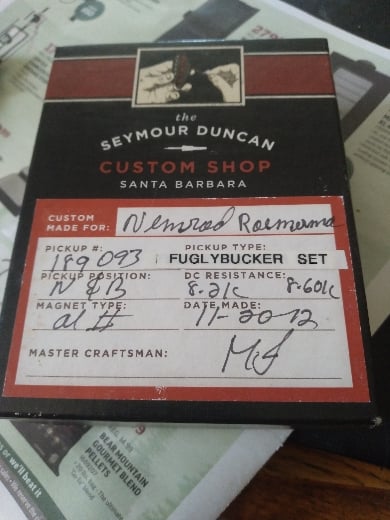 the
SEYMOUR DUNCAN
CUSTOM SHOP
SANTA BARBARA
CUSTOM MADE FOR: Nemrod
PICKUP #: 189093
PICKUP TYPE: FUGLYBUCKER SET
PICKUP POSITION: N & B
DC RESISTANCE: 8.21K 8.601K
MAGNET TYPE: al II
DATE MADE: 11-20-12
MASTER CRAFTSMAN: MJ
BEAR MOUNTAIN
GOURMET BLEND
PELLETS
or we'll beat it